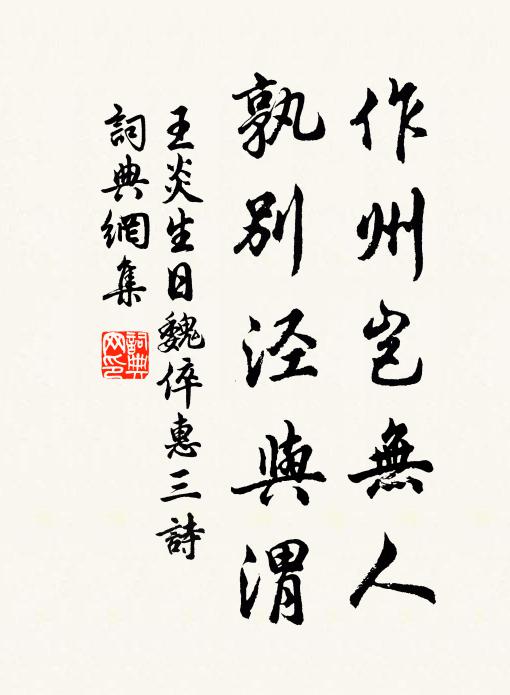 作州豈無人
孰別涇與渭
王炎生日魏倅惠三詩
詞典網集
詞典網印